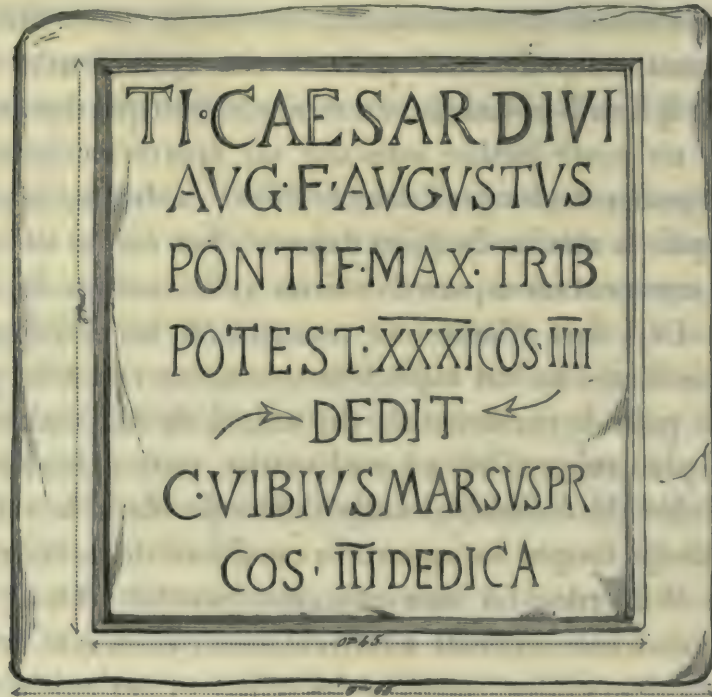 TI·CAESAR DIVI
AVG·F·AVGVSTVS
PONTIF·MAX·TRIB
POTEST·X̅X̅X̅I̅COS·I̅I̅I̅I̅
DEDIT
C·VIBIVSMARSVSPR
COS·I̅I̅I̅DEDICA